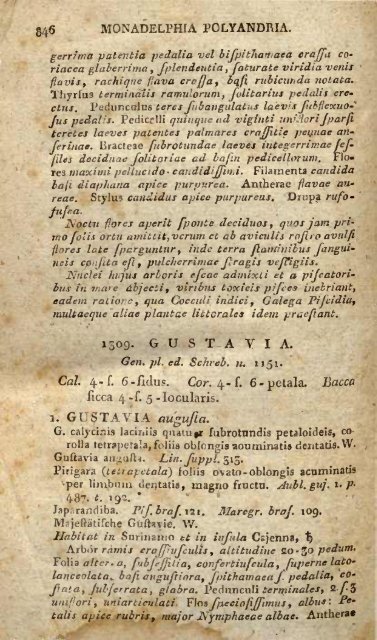 846 MONADELPHIA POLYANDRIA.
gerrima patentia pedalia vel bispithamaea crassa co-
riacea glaberrima, splendentia, saturate viridia venis
flavis, rachique flava crassa, basi rubicunda notata.
Thyrsus terminalis ramulorum, solitarius pedalis ere-
ctus. Pedunculus teres subangulatus laevis subflexuo-
sus pedalis. Pedicelli quinque ad viginti uniflori sparsi
teretes laeves patentes palmares crassitie pennae an-
serinae. Bracteae subrotundae laeves integerrimae ses-
siles deciduae solitariae ad basin pedicellorum. Flo-
res maximi pellucido-candidissimi. Filamenta candida
basi diaphana apice purpurea. Antherae flavae au-
reae. Stylus candidus apice purpureus. Drupa rufo-
fusca.
Noctu flores aperit sponte deciduos, quos jam pri-
mo solis ortu amittit, verum et ab aviculis rostro avulsi
flores late sparguntur, inde terra staminibus sangui-
neis consita est, pulcherrimae stragis vestigiis.
Nuclei hujus arboris escae admixti et a piscatori-
bus in mare abjecti, viribus toxicis pisces inebriant,
eadem ratione, qua Cocculi indici, Galega Piscidia,
multaeque aliae plantae littorales idem praestant.
1309. GUSTAVIA.
Gen. pl. ed. Schreb. n. 1151.
Cal. 4-s. 6-fidus. Cor. 4-s. 6-petala. Bacca
sicca 4-s. 5-locularis.
1. GUSTAVIA augusta.
G. calycinis laciniis quatuor subrotundis petaloideis, co-
rolla tetrapetala, foliis oblongis acuminatis dentatis. W.
Gustavia angusta. Lin. suppl. 313.
Pirigara (tetrapetala) foliis ovato-oblongis acuminatis
per limbum dentatis, magno fructu. Aubl. guj. 1. p.
487. t. 192.
Japarandiba. Pis. bras. 121. Maregr. bras. 109.
Majestätische Gustavie. W.
Habitat in Surinamo et in insula Cajenna, ♄
Arbor ramis crassiusculis, altitudine 20-30 pedum.
Folia alterna, subsessilia, confertiuscula, superne lato-
lanceolata, basi angustiora, spithamaea s. pedalia, co-
stata, subserrata, glabra. Pedunculi terminales, 2 s. 3
uniflori, uniarticulati. Flos speciosissimus, albus: Pe-
talis apice rubris, major Nymphaeae albae. Antherae